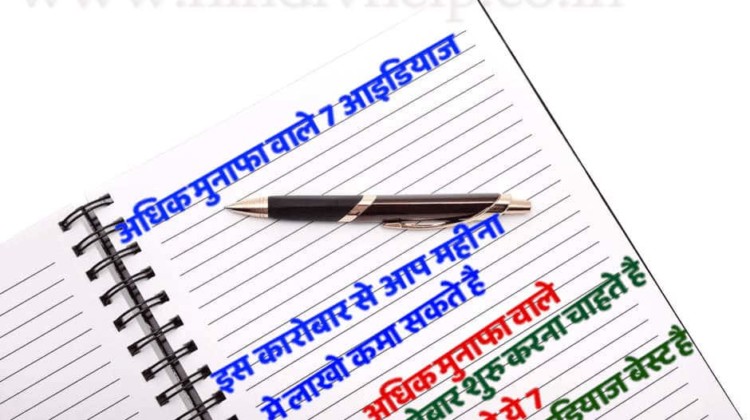 अधिक मुनाफा वाले 7 आइडियाज
इस कारोबार से आप महीना
मे लाखो कमा सकते है
अधिक मुनाफा वाले
शुरु करना चाहते है
ये 7
बेस्ट है